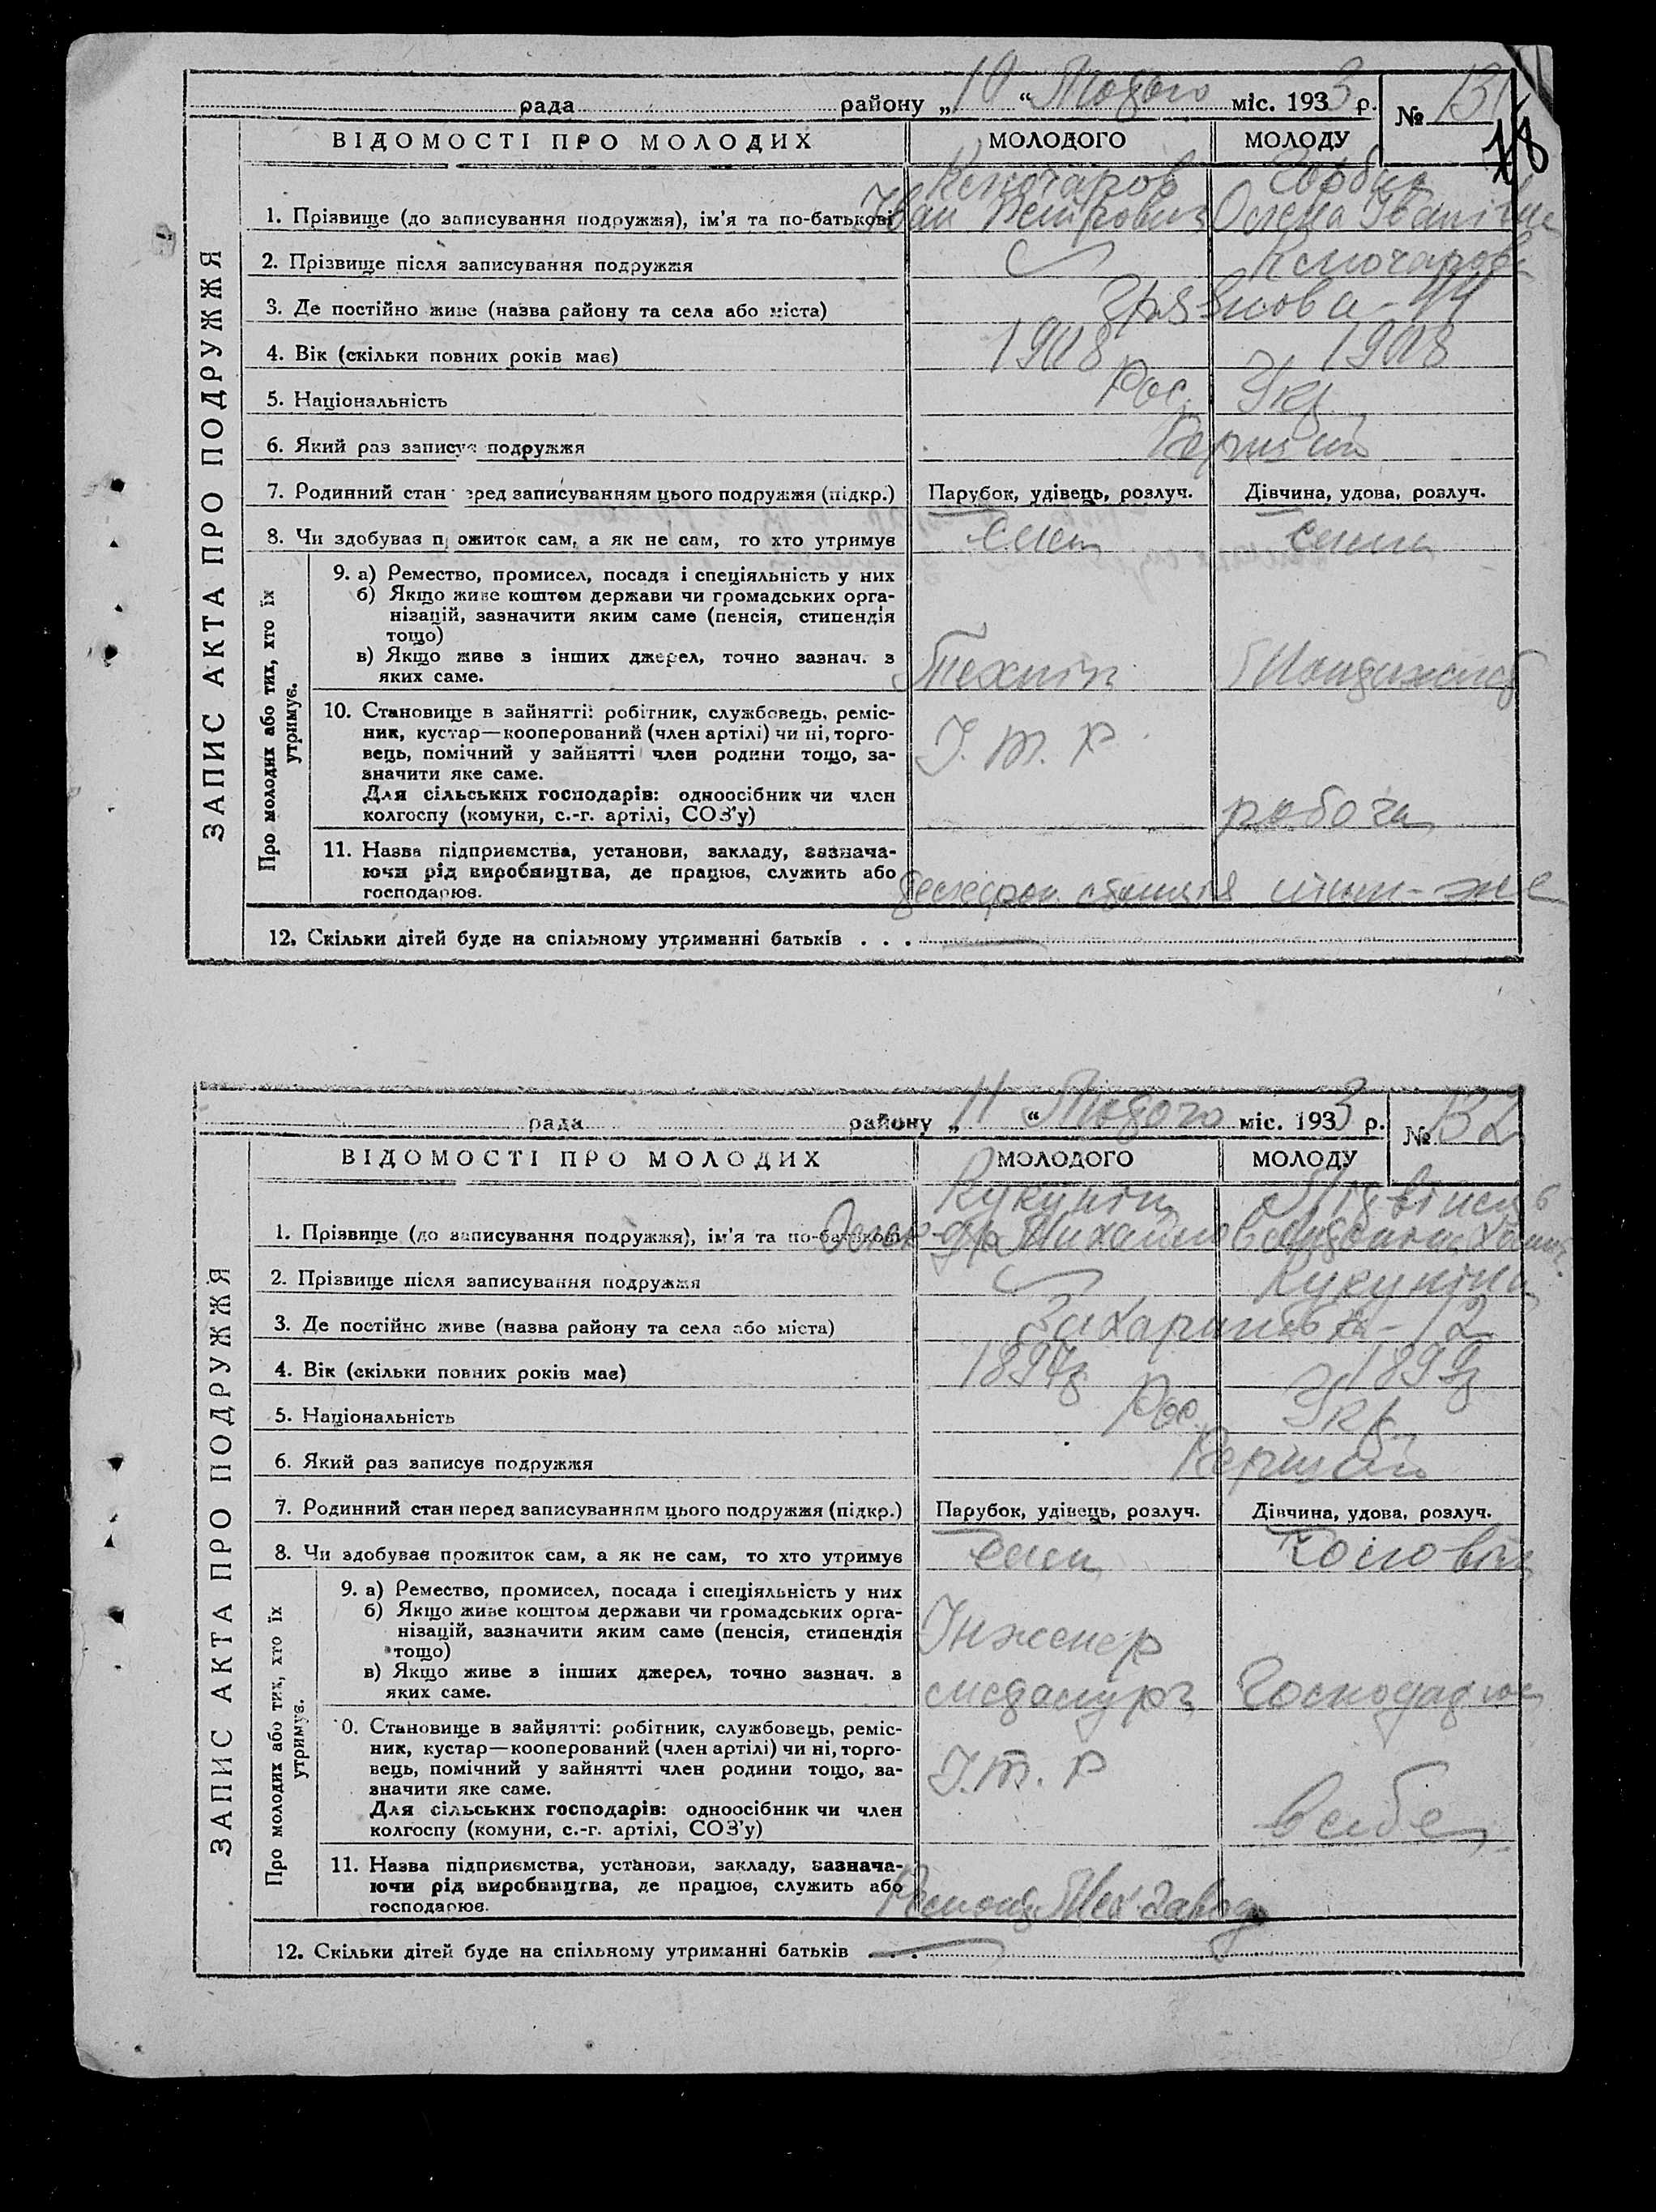 рада району „10“ Лютого міс. 1933 р. № 131
78
ВІДОМОСТІ ПРО МОЛОДИХ МОЛОДОГО МОЛОДУ
ЗАПИС АКТА ПРО ПОДРУЖЖЯ
1. Прізвище (до записування подружжя), ім’я та по-батькові Іван Петрович Олена Іванівна
2. Прізвище після записування подружжя
3. Де постійно живе (назва району та села або міста)
4. Вік (скільки повних років має) 1908 1908
5. Національність Рос. Укр.
6. Який раз записує подружжя Перший
7. Родинний стан перед записуванням цього подружжя (підкр.) Парубок, удівець, розлуч. Дівчина, удова, розлуч.
8. Чи здобуває прожиток сам, а як не сам, то хто утримує сам сама
Про молодих або тих, хто їх утримує.
9. а) Ремество, промисел, посада і спеціяльність у них
б) Якщо живе коштом держави чи громадських орга-
нізацій, зазначити яким саме (пенсія, стипендія
тощо)
в) Якщо живе з інших джерел, точно зазнач. з
яких саме. Технік
10. Становище в зайнятті: робітник, службовець, реміс-
ник, кустар—кооперований (член артілі) чи ні, торго- І. Т. Р.
вець, помічний у зайнятті член родини тощо, за-
значити яке саме.
Для сільських господарів: одноосібник чи член
колгоспу (комуни, с.-г. артілі, СОЗ’у) робоча
11. Назва підприємства, установи, закладу, зазнача-
ючи рід виробництва, де працює, служить або
господарює. станція там-же
12. Скільки дітей буде на спільному утриманні батьків . . .
рада району „11“ Лютого міс. 1933 р. № 132
ВІДОМОСТІ ПРО МОЛОДИХ МОЛОДОГО МОЛОДУ
ЗАПИС АКТА ПРО ПОДРУЖЖЯ
Кукунін
1. Прізвище (до записування подружжя), ім’я та по-батькові
2. Прізвище після записування подружжя Кукуніна
3. Де постійно живе (назва району та села або міста)
4. Вік (скільки повних років має)
5. Національність Рос. Укр.
6. Який раз записує подружжя Перший
7. Родинний стан перед записуванням цього подружжя (підкр.) Парубок, удівець, розлуч. Дівчина, удова, розлуч.
8. Чи здобуває прожиток сам, а як не сам, то хто утримує сам чоловік
Про молодих або тих, хто їх утримує.
9. а) Ремество, промисел, посада і спеціяльність у них
б) Якщо живе коштом держави чи громадських орга-
нізацій, зазначити яким саме (пенсія, стипендія Інженер
тощо)
в) Якщо живе з інших джерел, точно зазнач. з
яких саме. металург
10. Становище в зайнятті: робітник, службовець, реміс-
ник, кустар—кооперований (член артілі) чи ні, торго-
вець, помічний у зайнятті член родини тощо, за- І. Т. Р.
значити яке саме.
Для сільських господарів: одноосібник чи член
колгоспу (комуни, с.-г. артілі, СОЗ’у)
11. Назва підприємства, установи, закладу, зазнача-
ючи рід виробництва, де працює, служить або
господарює. Ремонт. Мех. завод
12. Скільки дітей буде на спільному утриманні батьків . . .